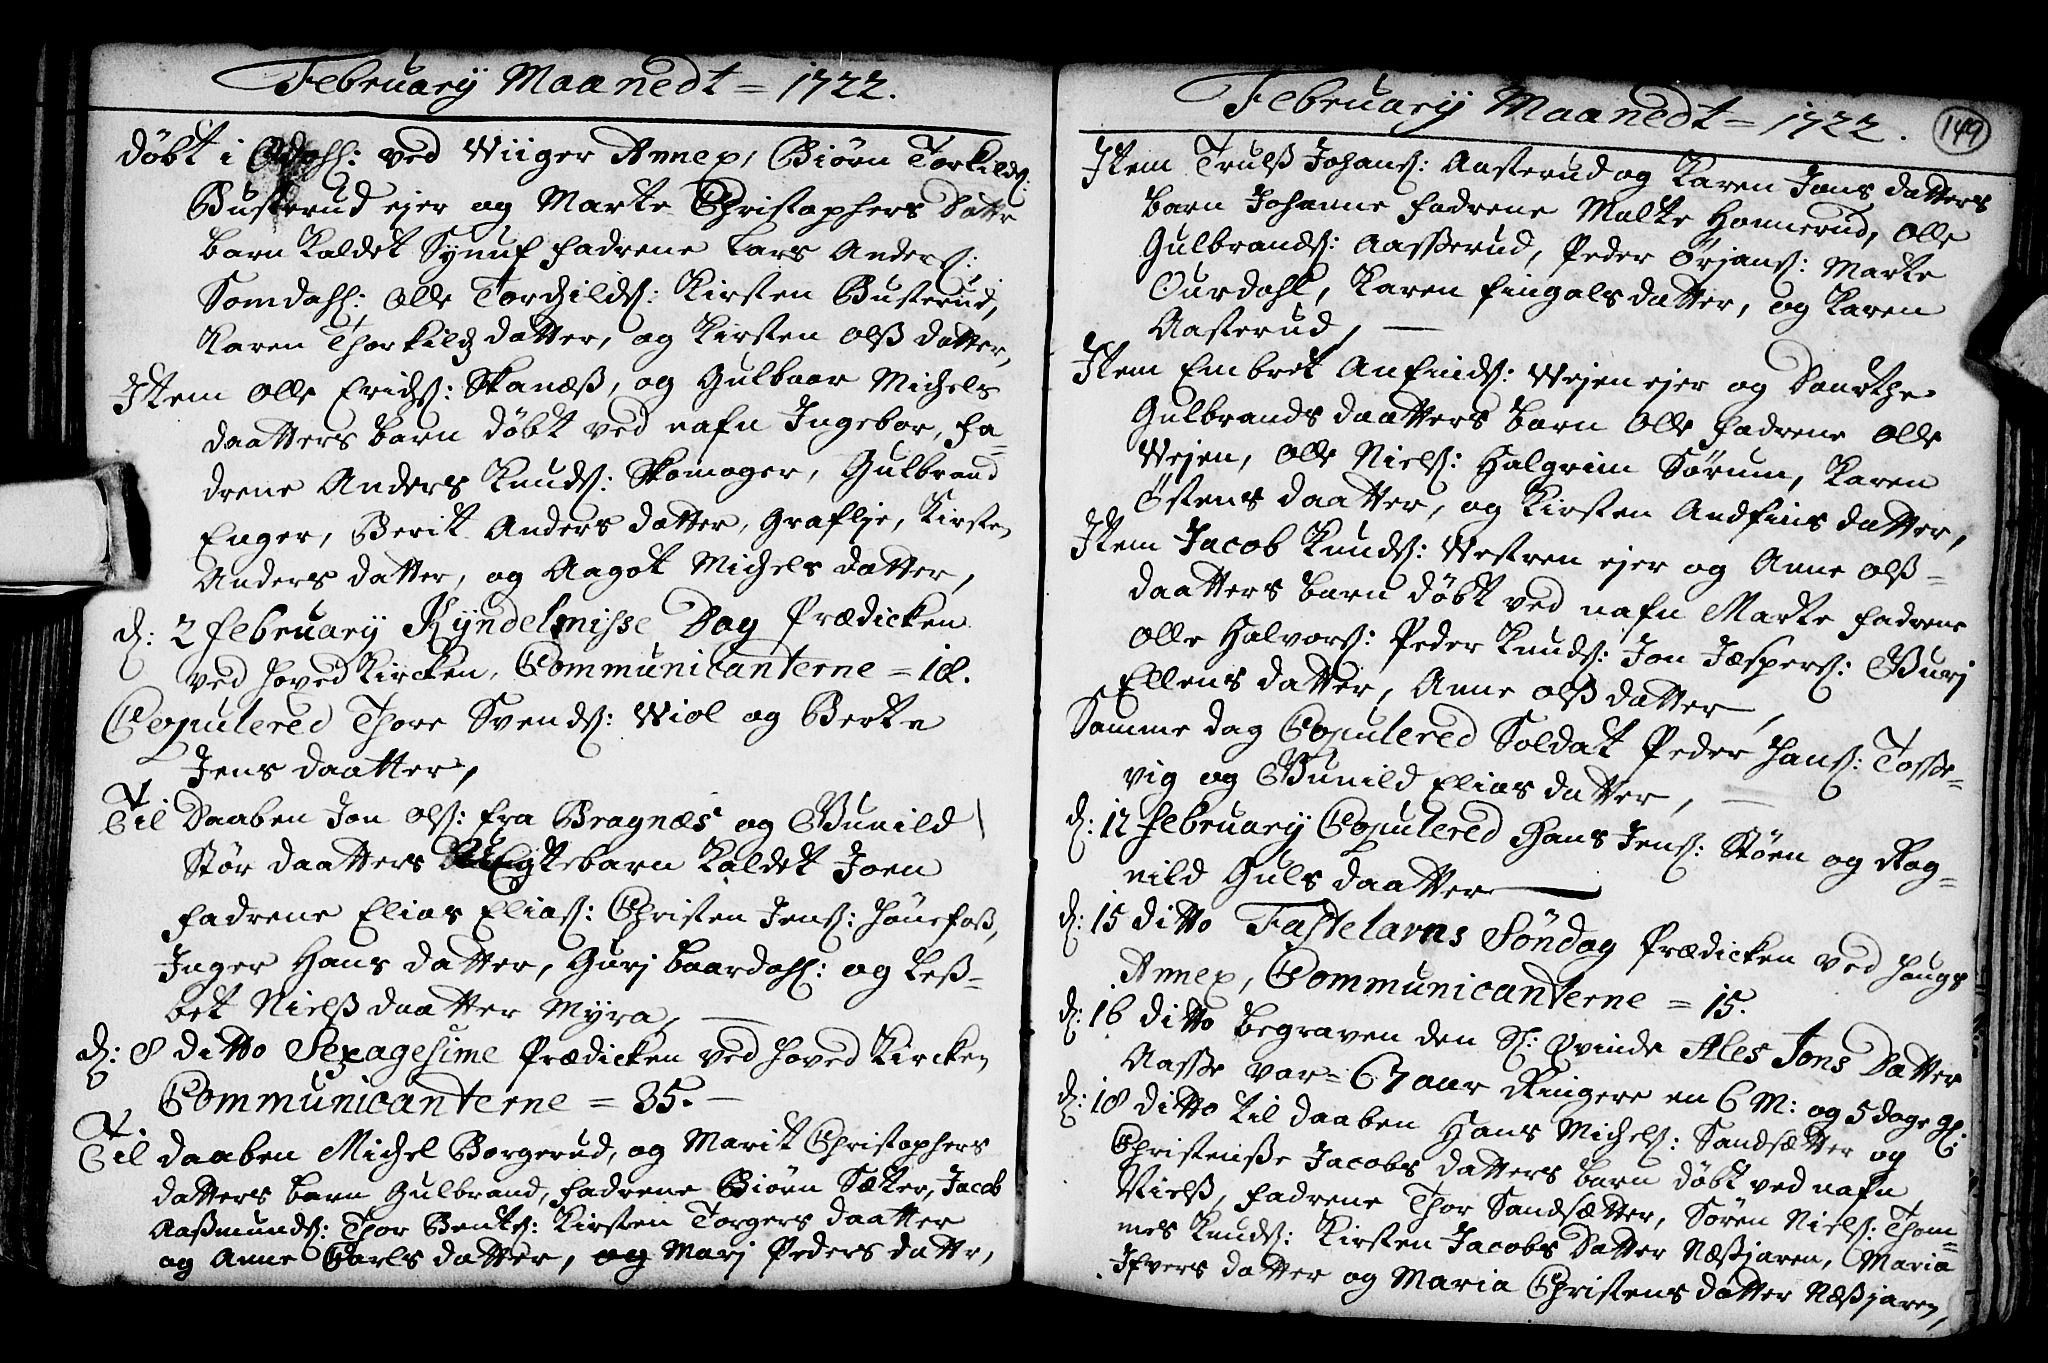 February Maanedt = 1722.
döbt i Ådahl: ved Wiiger Annex, Biörn Torkilds:
Busterud ejer og Marte Christophers datter
barn kaldet Synuf fadrene Lars Anders:
Somdahl: Olle Torchilds: Kirsten Busterud,
Karen Thorkilds datter, og Kirsten Olss datter,
Item Olle Erichs: Skanæss, og Gulbaar Michels
daatters barn döbt ved nafn Ingebor, fa=
drene Anders Knuds: Skomager, Gulbrand
Enger, Berit Anders datter, Graflje, Kirsten
Anders datter, og Aagot Michels datter,
d: 2 February Kyndelmisse Dag Prædicken
ved hoved Kircken, Communicanterne = 18.
Copulered Thore Svends: Wiol og Berte
Jens daatter,
Til Daaben Jon Ols: fra Bragnæs og Gunild
Stör daatters Uægtebarn kaldet Joen
fadrene Elias Elias: Christen Jens: Hönefoss,
Inger Hans datter, Gurj Baardahl: og Less=
bet Nielss daatter Myra,
d: 8 ditto Sexagesime Prædicken ved hoved Kircken
Communicanterne = 35.
Til daaben Michel Borgerud, og Marit Christophers
datters barn Gulbrand, fadrene Biörn Sæter, Jacob
Aassmunds: Thor Bents: Kirsten Torgers daatter
og Anne Carls datter, og Marj Peders datter,
February Maanedt = 1722.
149
Item Trulss Johans: Aasterud og Karen Jans datters
barn Johanne fadrene Malte Honnerud, Olle
Gulbrands: Aasserud, Peder Örjans: Marte
Ourdahl, Karen fingals datter, og Karen
Aasterud,
Item Embret Anfinds: Wejen ejer og Dorthe
Gulbrands daatters barn Olle fadrene Olle
Wejen, Olle Niels: Halgrim Sörum, Karen
Östens daatter, og Kirsten Andfins datter,
Item Jacob Knuds: Westren ejer og Anne Olss=
daatters barn döbt ved nafn Marte fadrene
Olle Halvors: Peder Knuds: Jon Jespers: Gurj
Ellens datter, Anne Olss datter,
Samme dag Copulered Soldat Peder Hans: Tosse=
vig og Gunild Elias datter,
d: 12 February Copulered Hans Jens: Stöen og Rag=
nild Guls daatter
d: 15 ditto Fastelavns Söndag Prædicken ved Haugs
Annex, Communicanterne = 15.
d: 16 ditto begraven den Sl: Qvinde Ales Jons Datter
Aasse var = 67 aar Ringere en 6 M: og 5 dage gl:
d: 18 ditto til daaben Hans Michels: Sandsætter og
Christensse Jacobs datters barn döbt ved nafn
Nielss, fadrene Thor Sandsætter, Sören Niels: Thom=
mes Knuds: Kirsten Jacobs Datter Næssjaren, Maria
Ifvers datter og Maria Christens datter Næssjaren,